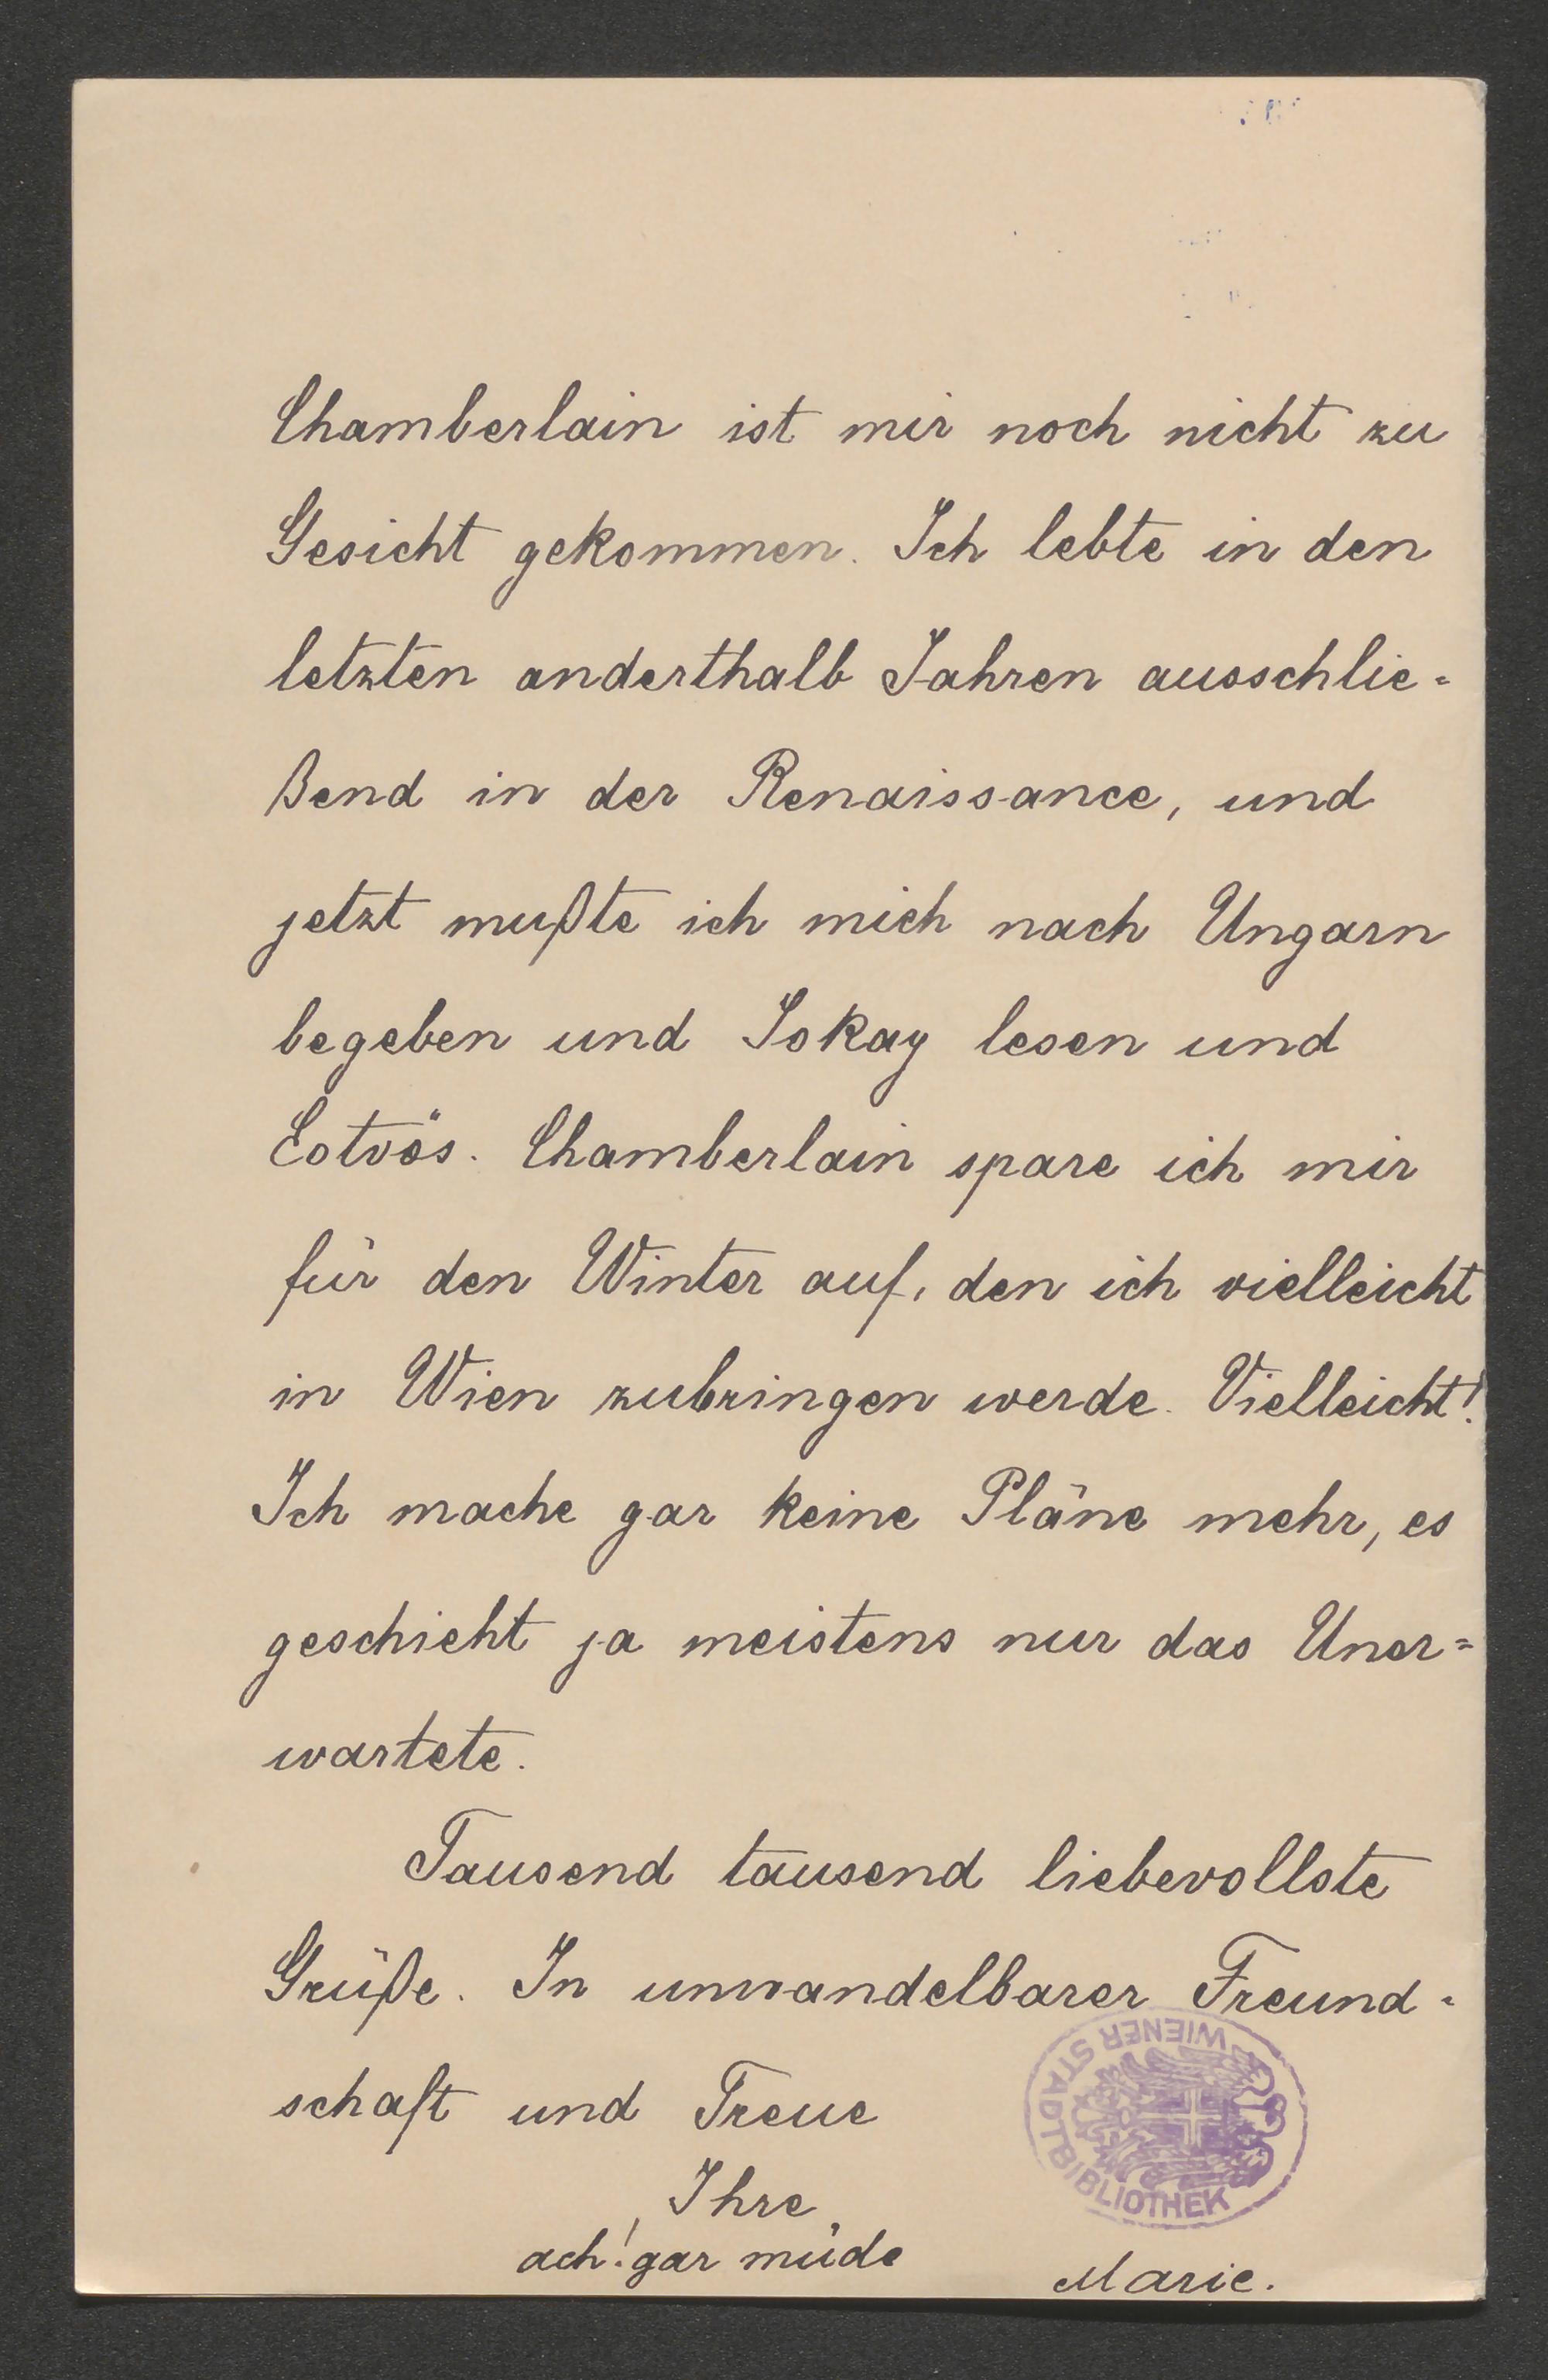 Chamberlain ist mir noch nicht zu
Gesicht gekommen. Ich lebte in den
letzten anderthalb Jahren ausschlie-
ßend in der Renaissance, und
jetzt mußte ich mich nach Ungarn
begeben und Jokay lesen und
Eotvös. Chamberlain spare ich mir
für den Winter auf, den ich vielleicht
in Wien zubringen werde. Vielleicht!
Ich mache gar keine Pläne mehr, es
geschieht ja meistens nur das Uner=
wartete.
Tausend tausend liebevollste
Grüße. In unwandelbarer Freund-
schaft und Treue
Ihre
ach! gar müde
Marie.
WIENER STADTBIBLIOTHEK